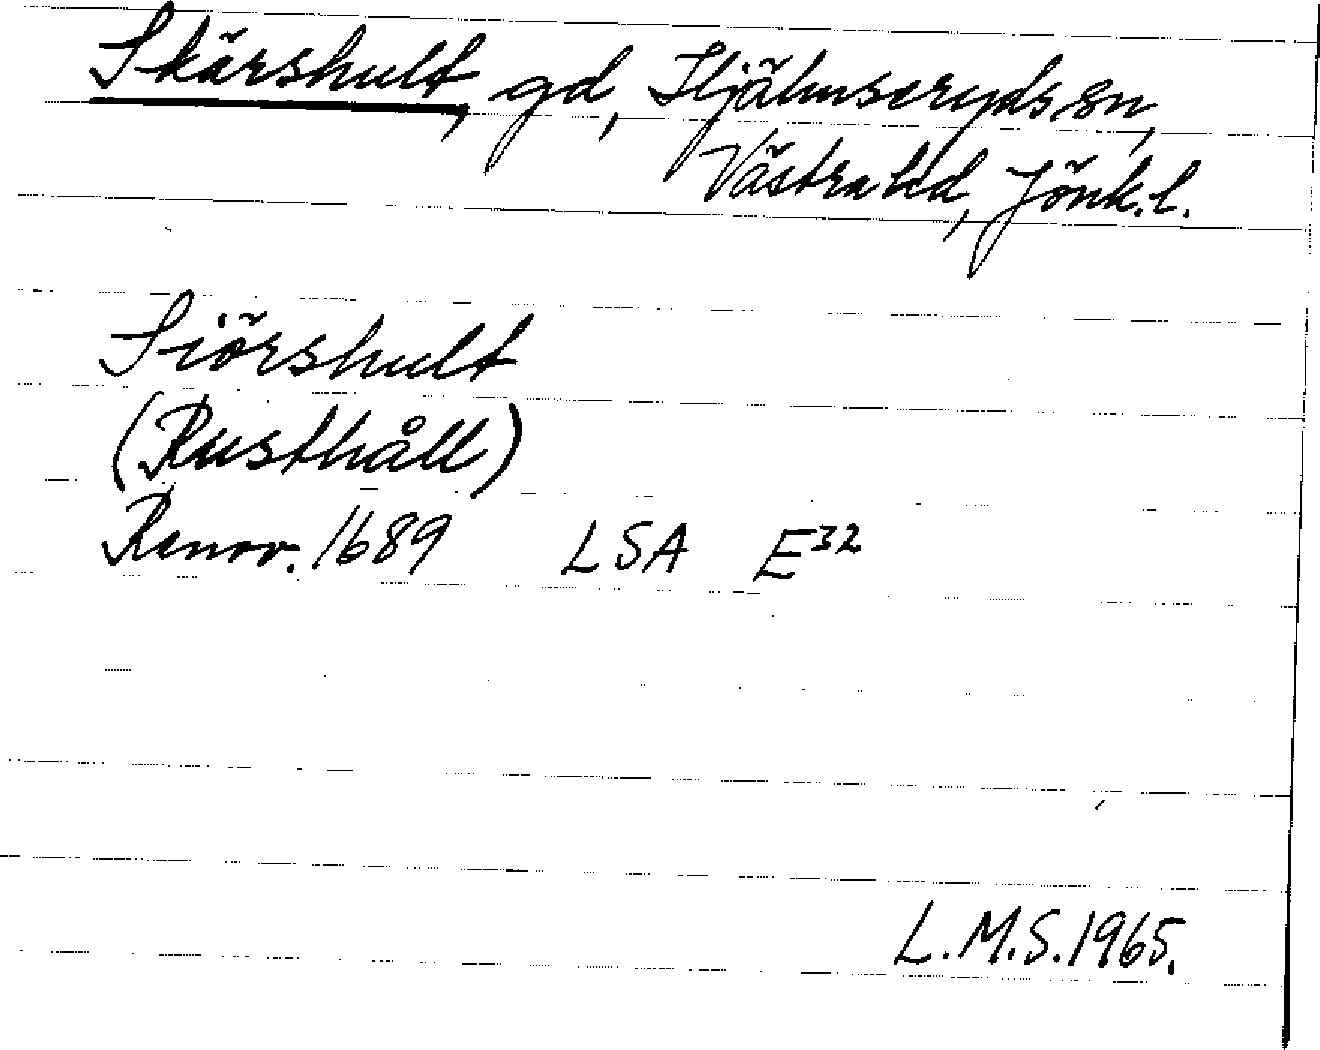 Skärshult, gd, Hjälmseryds sn,
Västra hd, Jönk.l.
Siörshult
(Rusthåll)
Renov. 1689 LSA E32
L.M.S. 1965.